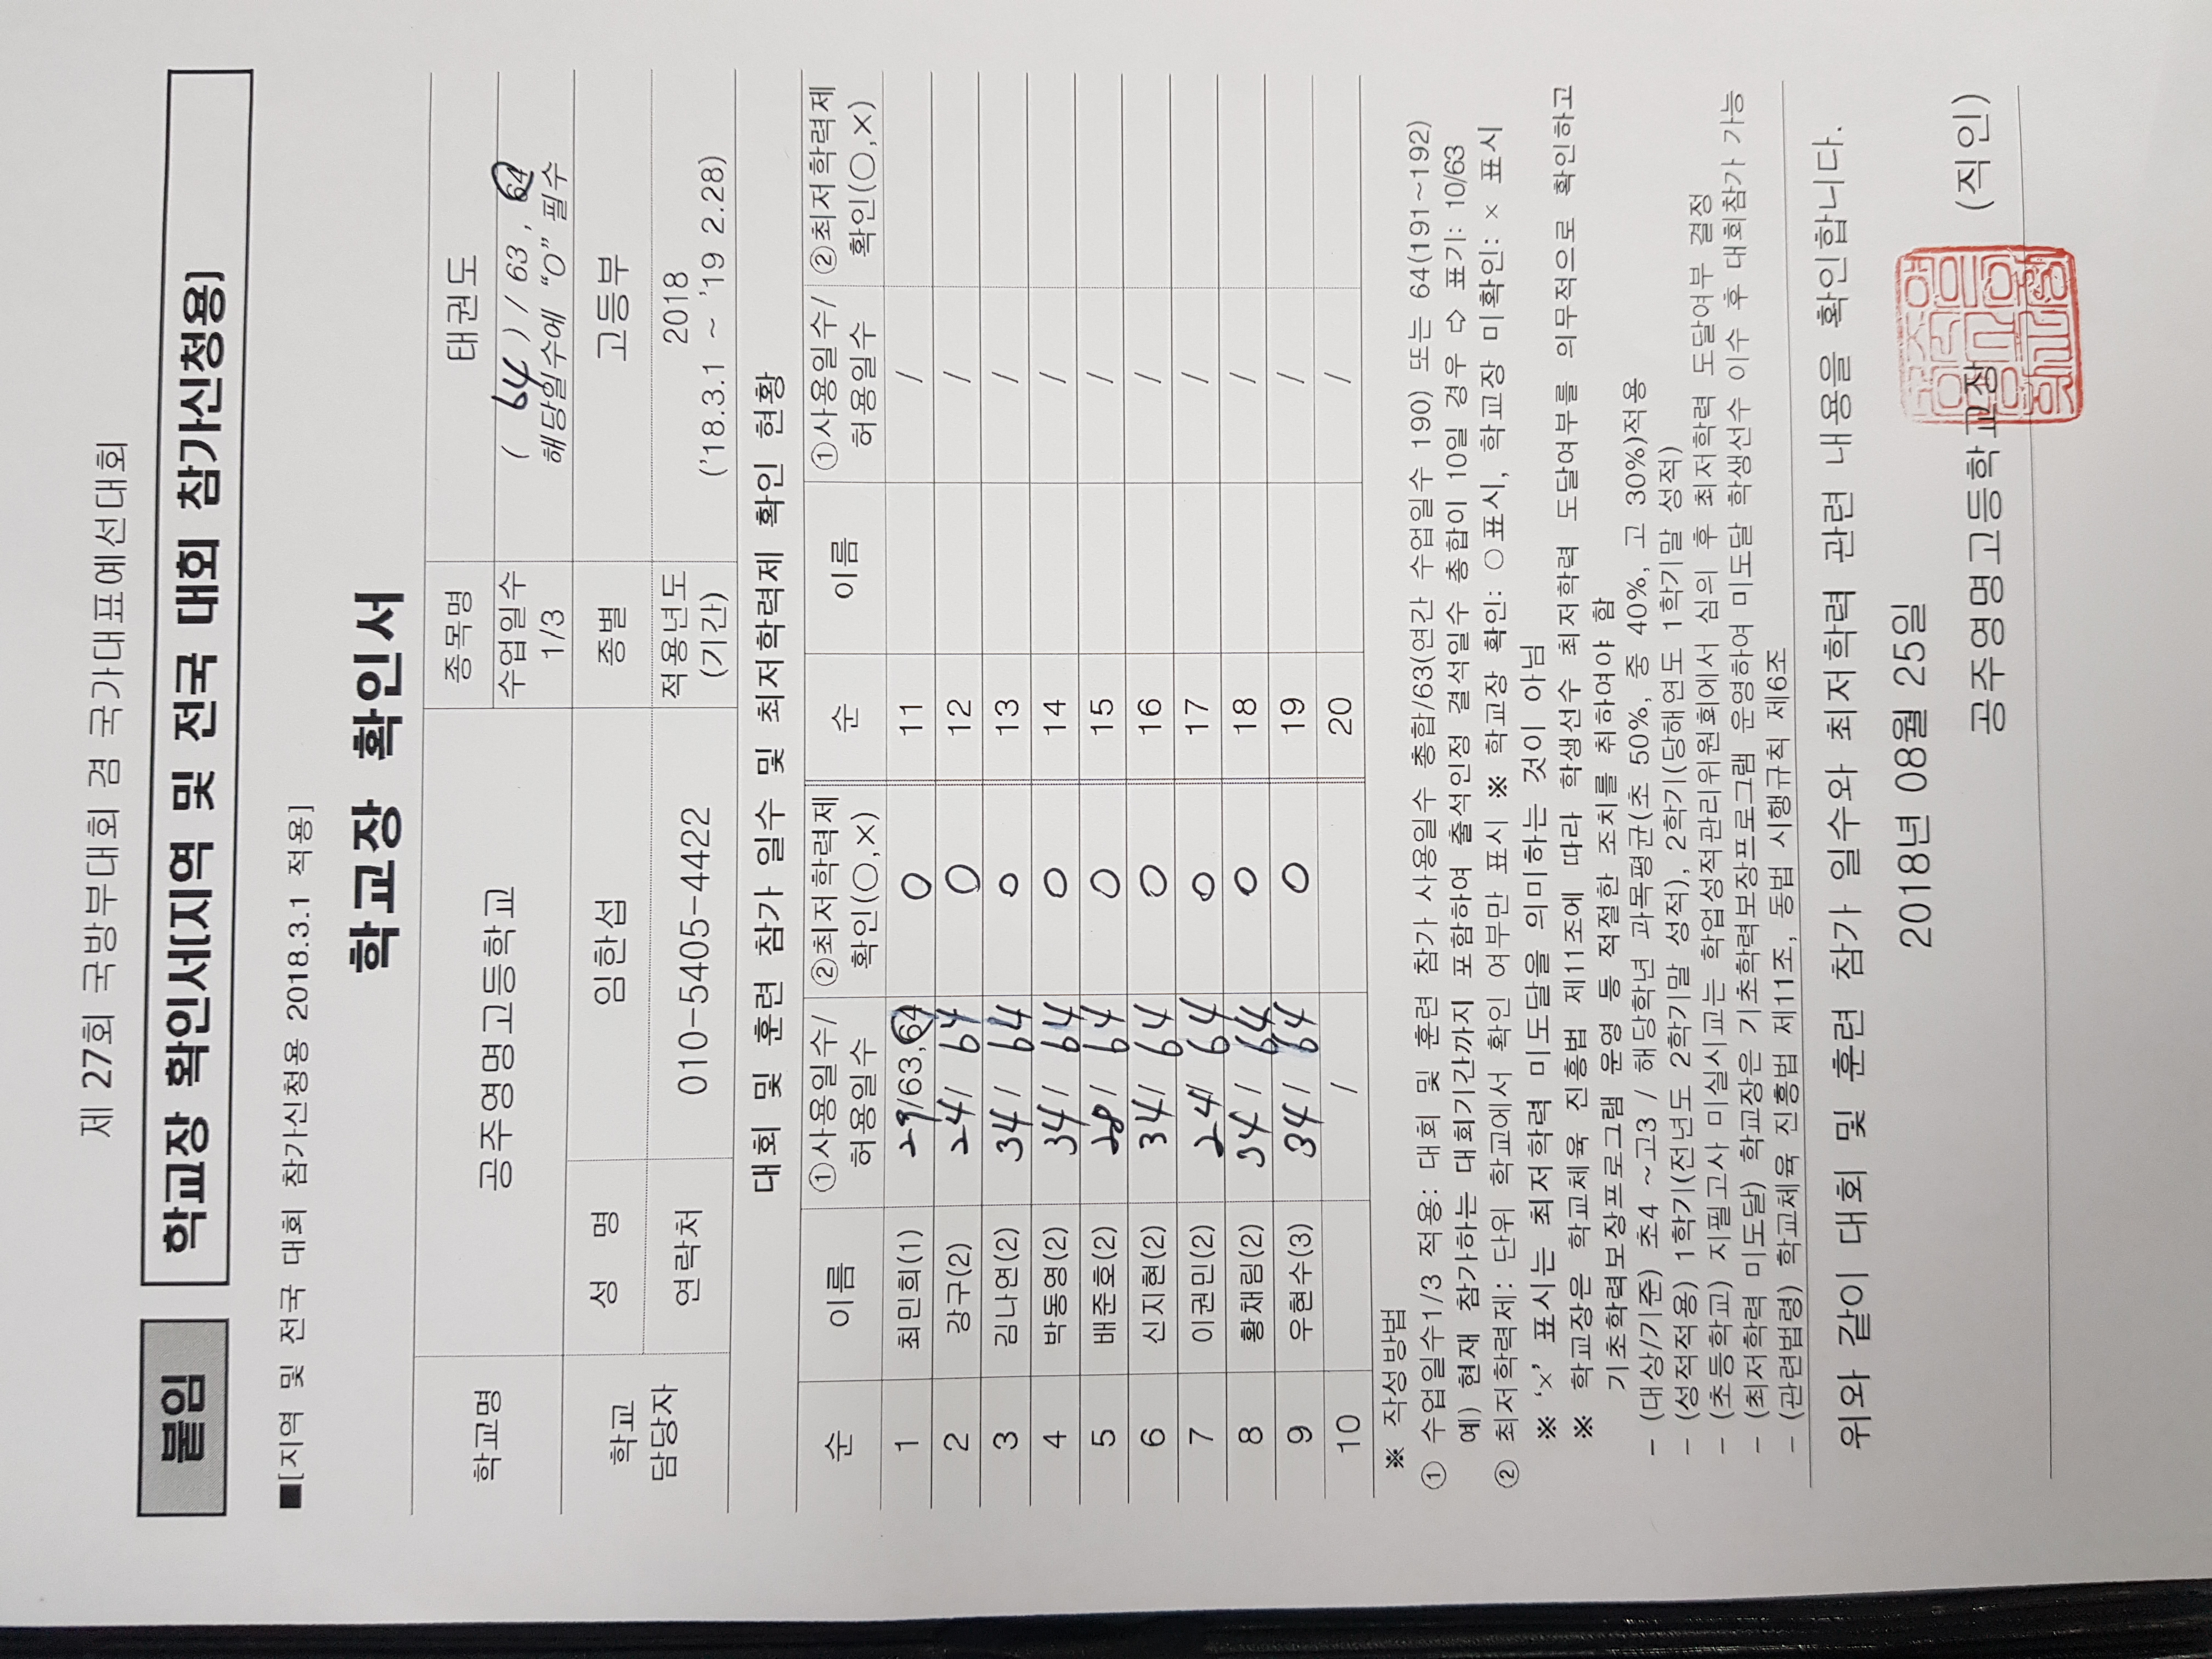 제 27회 국방부대회 겸 국가대표예선대회
붙임 학교장 확인서[지역 및 전국 대회 참가신청용]
■[지역 및 전국 대회 참가신청용 2018.3.1 적용]
학교장 확인서
학교명 공주영명고등학교 종목명 태권도
수업일수 1/3 ( 64 ) / 63 , 64 해당일수에 “O” 필수
학교 담당자 성 명 임한섭 종별 고등부
연락처 010-5405-4422 적용년도 (기간) 2018 ('18.3.1 ~ '19 2.28)
대회 및 훈련 참가 일수 및 최저학력제 확인 현황
순 이름 ①사용일수/허용일수 ②최저학력제 확인(○,×) 순 이름 ①사용일수/허용일수 ②최저학력제 확인(○,×)
1 최민희(1) 29/63,64 O 11 /
2 강구(2) 24/ 64 O 12 /
3 김나연(2) 34/ 64 O 13 /
4 박동영(2) 34/ 64 O 14 /
5 배준호(2) 28/ 64 O 15 /
6 신지현(2) 34/ 64 O 16 /
7 이권민(2) 24/ 64 O 17 /
8 황채림(2) 34/ 64 O 18 /
9 우현수(3) 34/ 64 O 19 /
10 / 20 /
※ 작성방법
① 수업일수1/3 적용: 대회 및 훈련 참가 사용일수 총합/63(연간 수업일수 190) 또는 64(191~192)
예) 현재 참가하는 대회기간까지 포함하여 출석인정 결석일수 총합이 10일 경우 ⇨ 표기: 10/63
② 최저학력제: 단위 학교에서 확인 여부만 표시 ※ 학교장 확인: ○표시, 학교장 미확인: × 표시
※ ‘×’ 표시는 최저학력 미도달을 의미하는 것이 아님
※ 학교장은 학교체육 진흥법 제11조에 따라 학생선수 최저학력 도달여부를 의무적으로 확인하고
기초학력보장프로그램 운영 등 적절한 조치를 취하여야 함
- (대상/기준) 초4 ~고3 / 해당학년 과목평균(초 50%, 중 40%, 고 30%)적용
- (성적적용) 1학기(전년도 2학기말 성적), 2학기(당해연도 1학기말 성적)
- (초등학교) 지필고사 미실시교는 학업성적관리위원회에서 심의 후 최저학력 도달여부 결정
- (최저학력 미도달) 학교장은 기초학력보장프로그램 운영하여 미도달 학생선수 이수 후 대회참가 가능
- (관련법령) 학교체육 진흥법 제11조, 동법 시행규칙 제6조
위와 같이 대회 및 훈련 참가 일수와 최저학력 관련 내용을 확인합니다.
2018년 08월 25일
공주영명고등학교장 (직인)